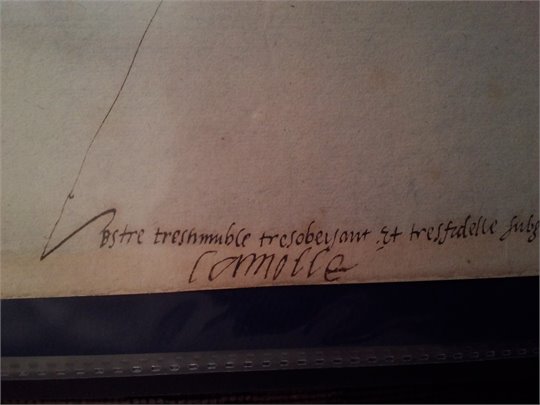 Vostre treshumble tresobeisant Et tresfidelle subg
Lamolle